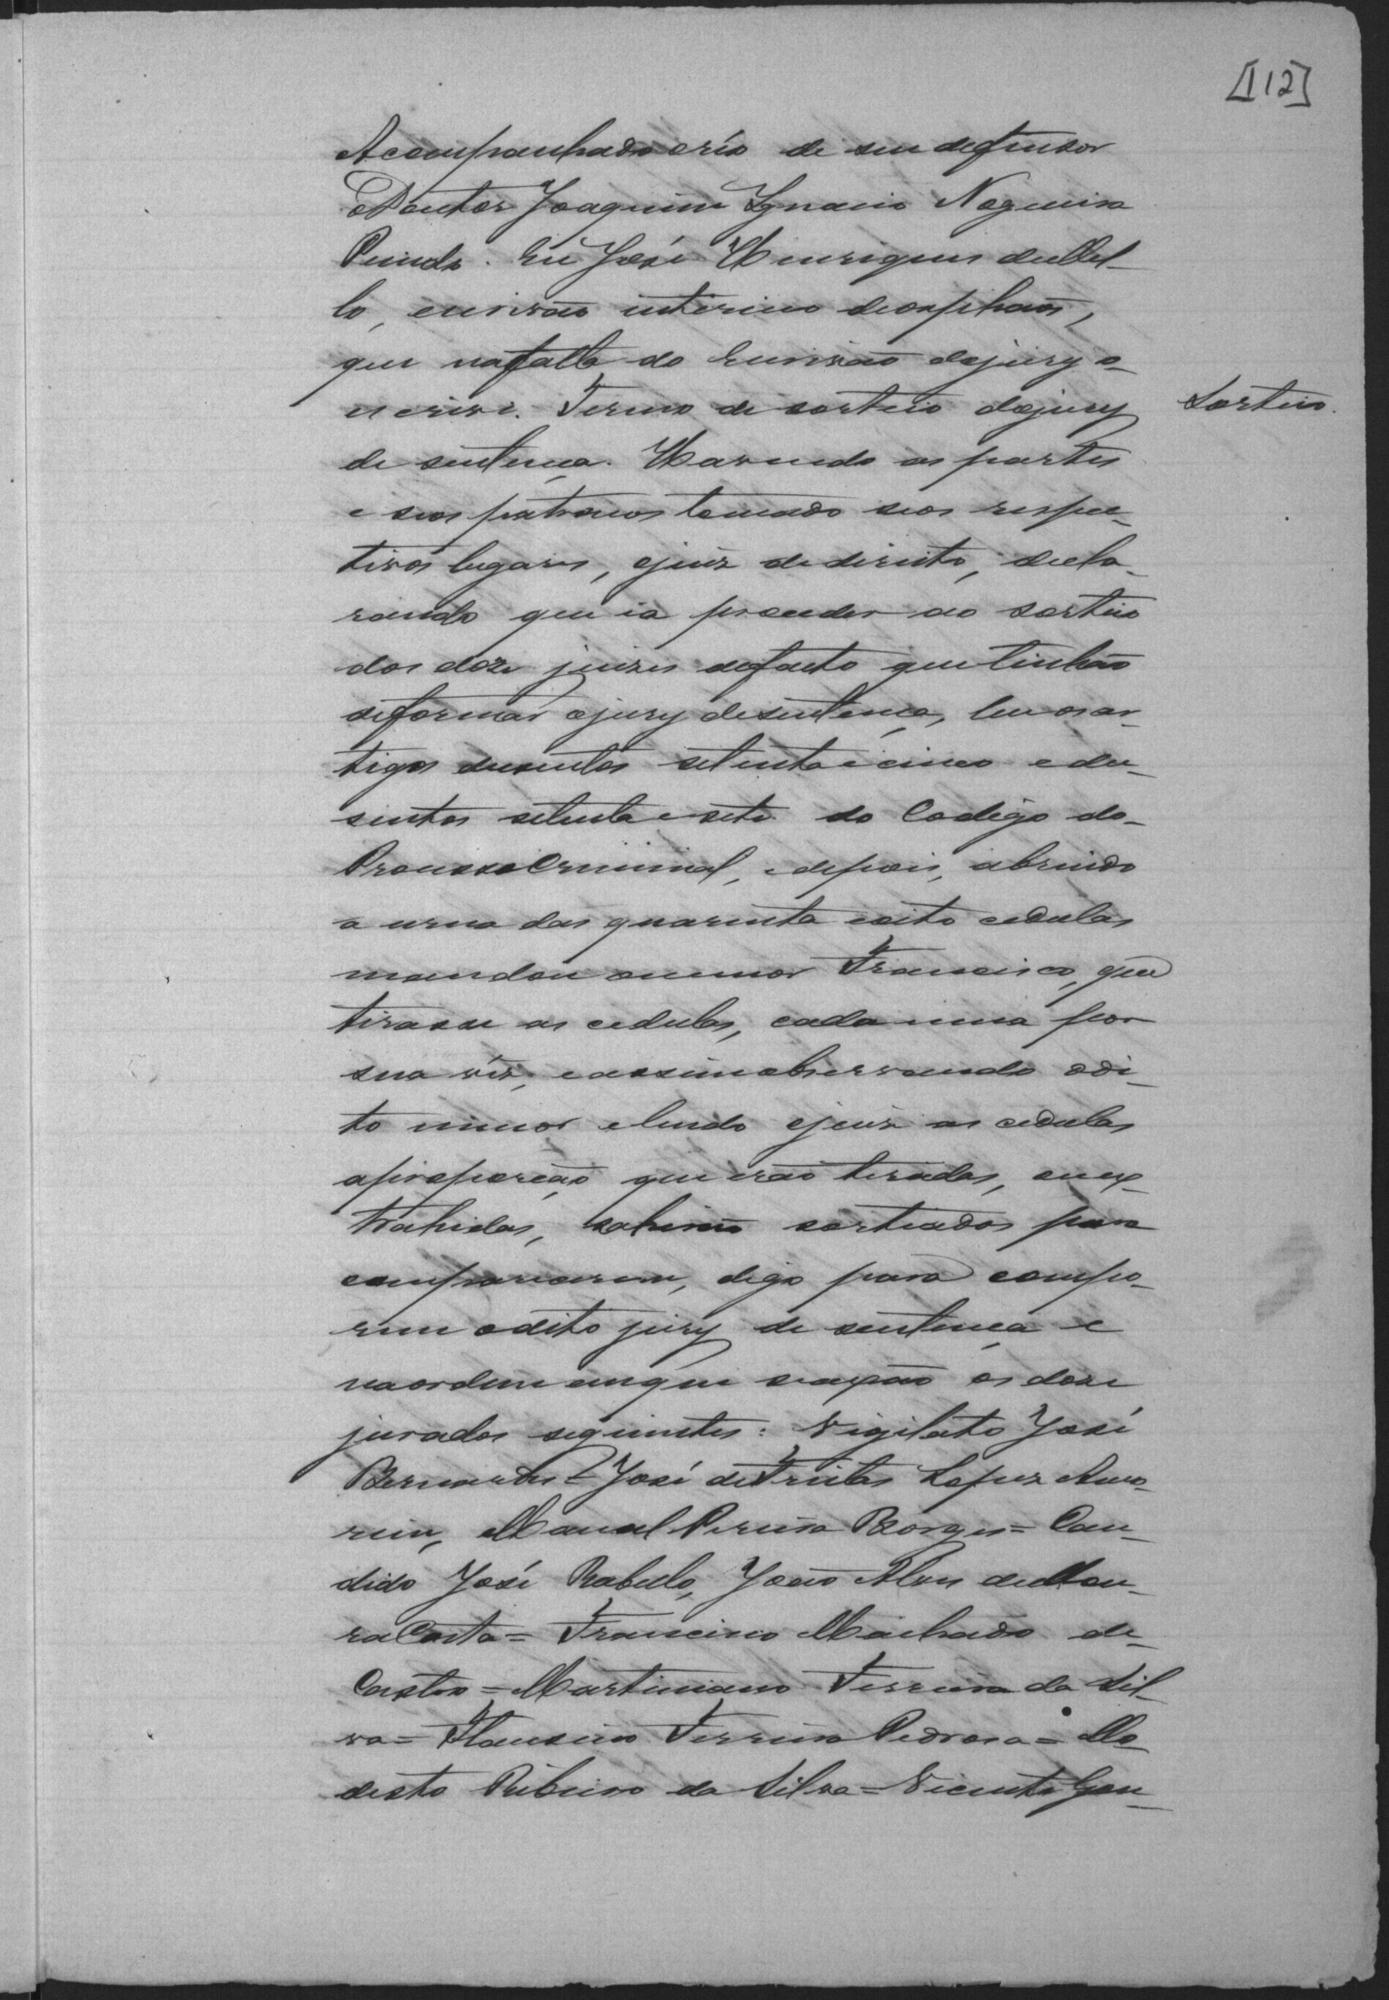 [112]
Acompanhado o réo de seu defensor
Doutor Joaquim Ignacio Nogueira
Penido. Eu José Henriques de Mel-
lo, escrivão interino de orphãos,
que na falta do Escrivão do jury o
escrevi. Termo de sorteio do jury
Sorteio.
de sentença. Havendo as partes
e seos patronos tomado seos respec-
tivos lugares, o juiz de direito, decla-
rando que ia proceder ao sorteio
dos doze juizes de facto que tinhão
de formar o jury de sentença, leu os ar-
tigos dusentos setenta e cinco e du-
sentos setenta e sete do Codigo do
Processo Criminal, e depois, abrindo
a urna das quarenta e oito cedulas
mandou o menor Francisco, que
tirasse as cedulas, cada uma por
sua vez, e assim observando o di-
to menor e lendo o juiz as cedulas
a proporção que erão tiradas, ou ex-
trahidas, sahirão sorteados para
comparecerem, digo para compo-
rem o dito jury de sentença e
na ordem em que se axão os doze
jurados seguintes: Vigilato José
Bernardes = José de Freitas Lopes Amo-
rim, Manoel Pereira Borges = Can-
dido José Rabelo, João Alves de Mou-
ra Costa = Francisco Machado de
Castro = Martiniano Ferreira da Sil-
va = Flausino Ferreira Pedrosa = Mo-
desto Ribeiro da Silva = Vicente Gon-